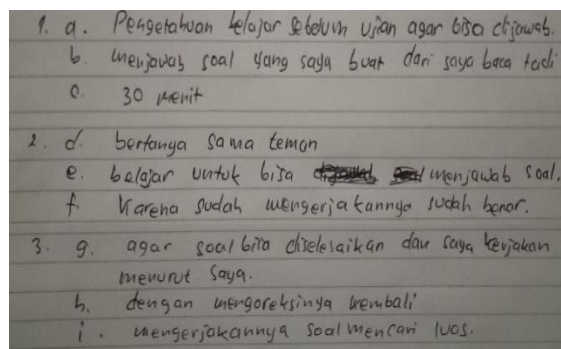 1. a. Pengetahuan belajar sebelum ujian agar bisa dijawab.
b. menjawab soal yang saya buat dari saya baca tadi
c. 30 menit
2. d. bertanya sama teman
e. belajar untuk bisa menjawab soal.
f. Karena sudah mengerjakannya sudah benar.
3. g. agar soal bisa diselesaikan dan saya kerjakan
menurut saya.
h. dengan mengoreksinya kembali
i. mengerjakannya soal mencari luas.